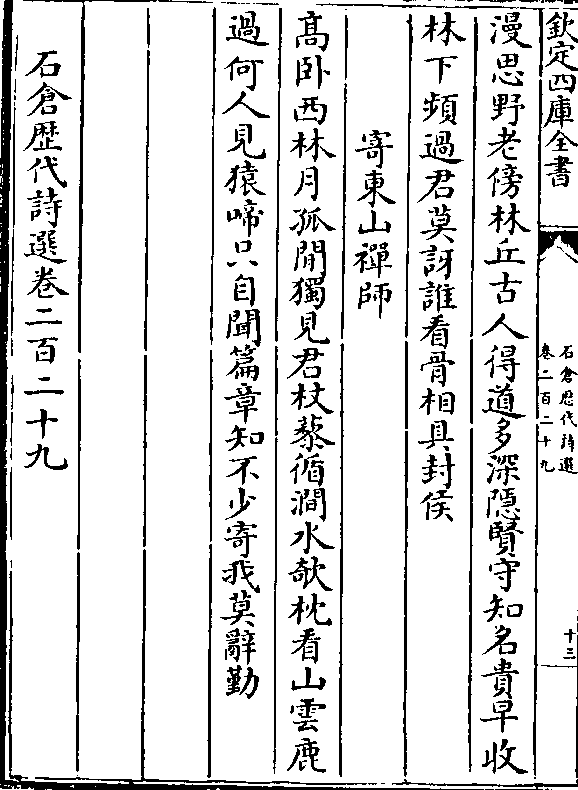 欽定四庫全書
石倉歴代詩選
卷二百二十九
十三
漫思野老傍林丘古人得道多深隠賢守知名貴早收
林下頻過君莫訝誰看骨相具封侯
寄東山禪師
髙卧西林月孤閒獨見君杖藜循澗水欹枕看山雲鹿
過何人見猿啼只自聞篇章知不少寄我莫辭勤
石倉歴代詩選卷二百二十九